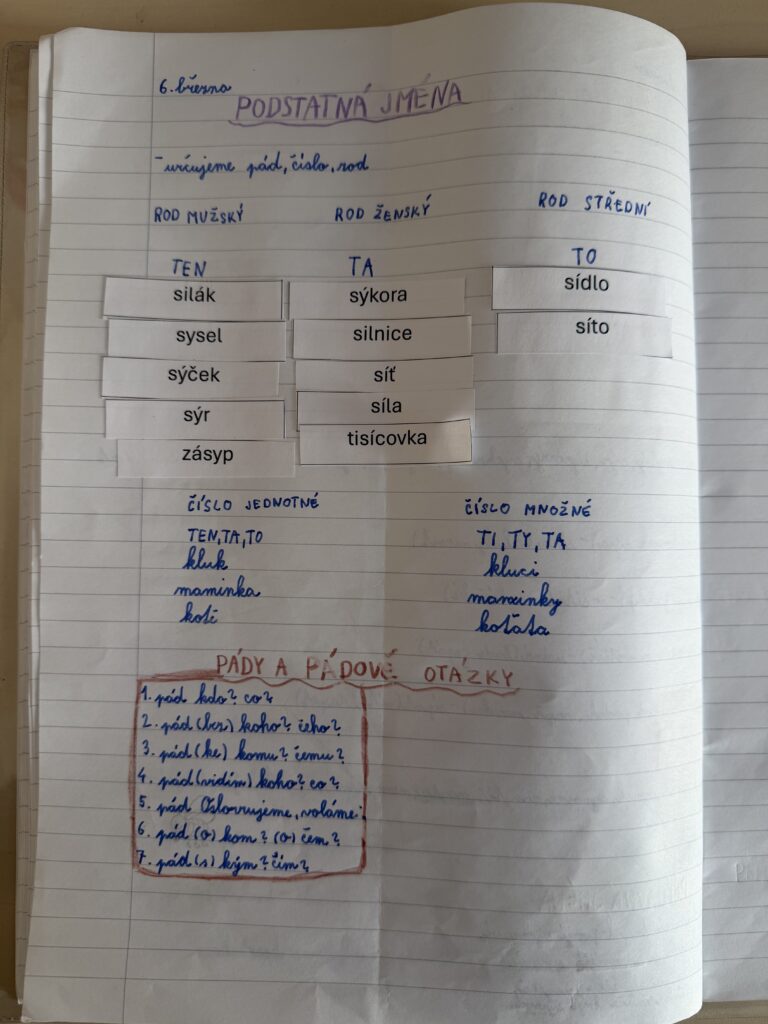 6. března
PODSTATNÁ JMÉNA
- určujeme pád, číslo, rod
ROD MUŽSKÝ ROD ŽENSKÝ ROD STŘEDNÍ
TEN TA TO
silák sýkora sídlo
sysel silnice síto
sýček síť
sýr síla
zásyp tisícovka
ČÍSLO JEDNOTNÉ ČÍSLO MNOŽNÉ
TEN, TA, TO TI, TY, TA
kluk kluci
maminka maminky
kotě koťata
PÁDY A PÁDOVÉ OTÁZKY
1. pád kdo? co?
2. pád (bez) koho? čeho?
3. pád (ke) komu? čemu?
4. pád (vidím) koho? co?
5. pád Oslovujeme, voláme:
6. pád (o) kom? (o) čem?
7. pád (s) kým? čím?